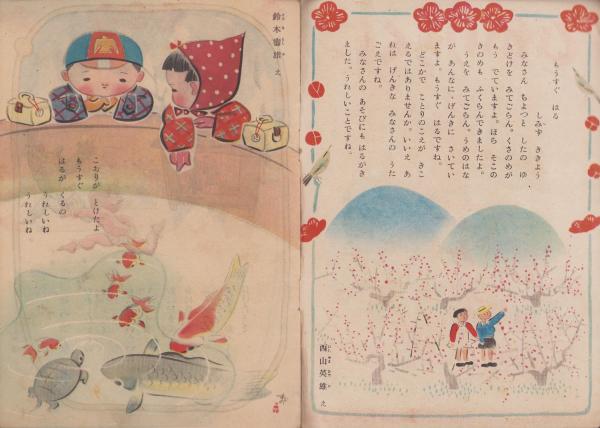 もうすぐ　はる
しみず　ききよう
みなさん　ちよつと　したの　ゆ
きどけを　みてごらん。くさのめが
もう　でていますよ。ほら　そこの
きのめも　ふくらんできましたよ。
うえを　みてごらん。うめのはな
が　あんなに、げんきに　さいてい
ますよ。もうすぐ　はるですね。
どこかで　ことりのこえが　きこ
えるではありませんか。いいえ　あ
れは　げんきな　みなさんの　うた
ごえですね。
みなさんの　あそびにも　はるがき
ました。うれしいことですね。
西山英雄　え
鈴木壽雄　え
こおりが　とけたよ
もうすぐ
はるが　くるの
うれしいね
うれしいね。